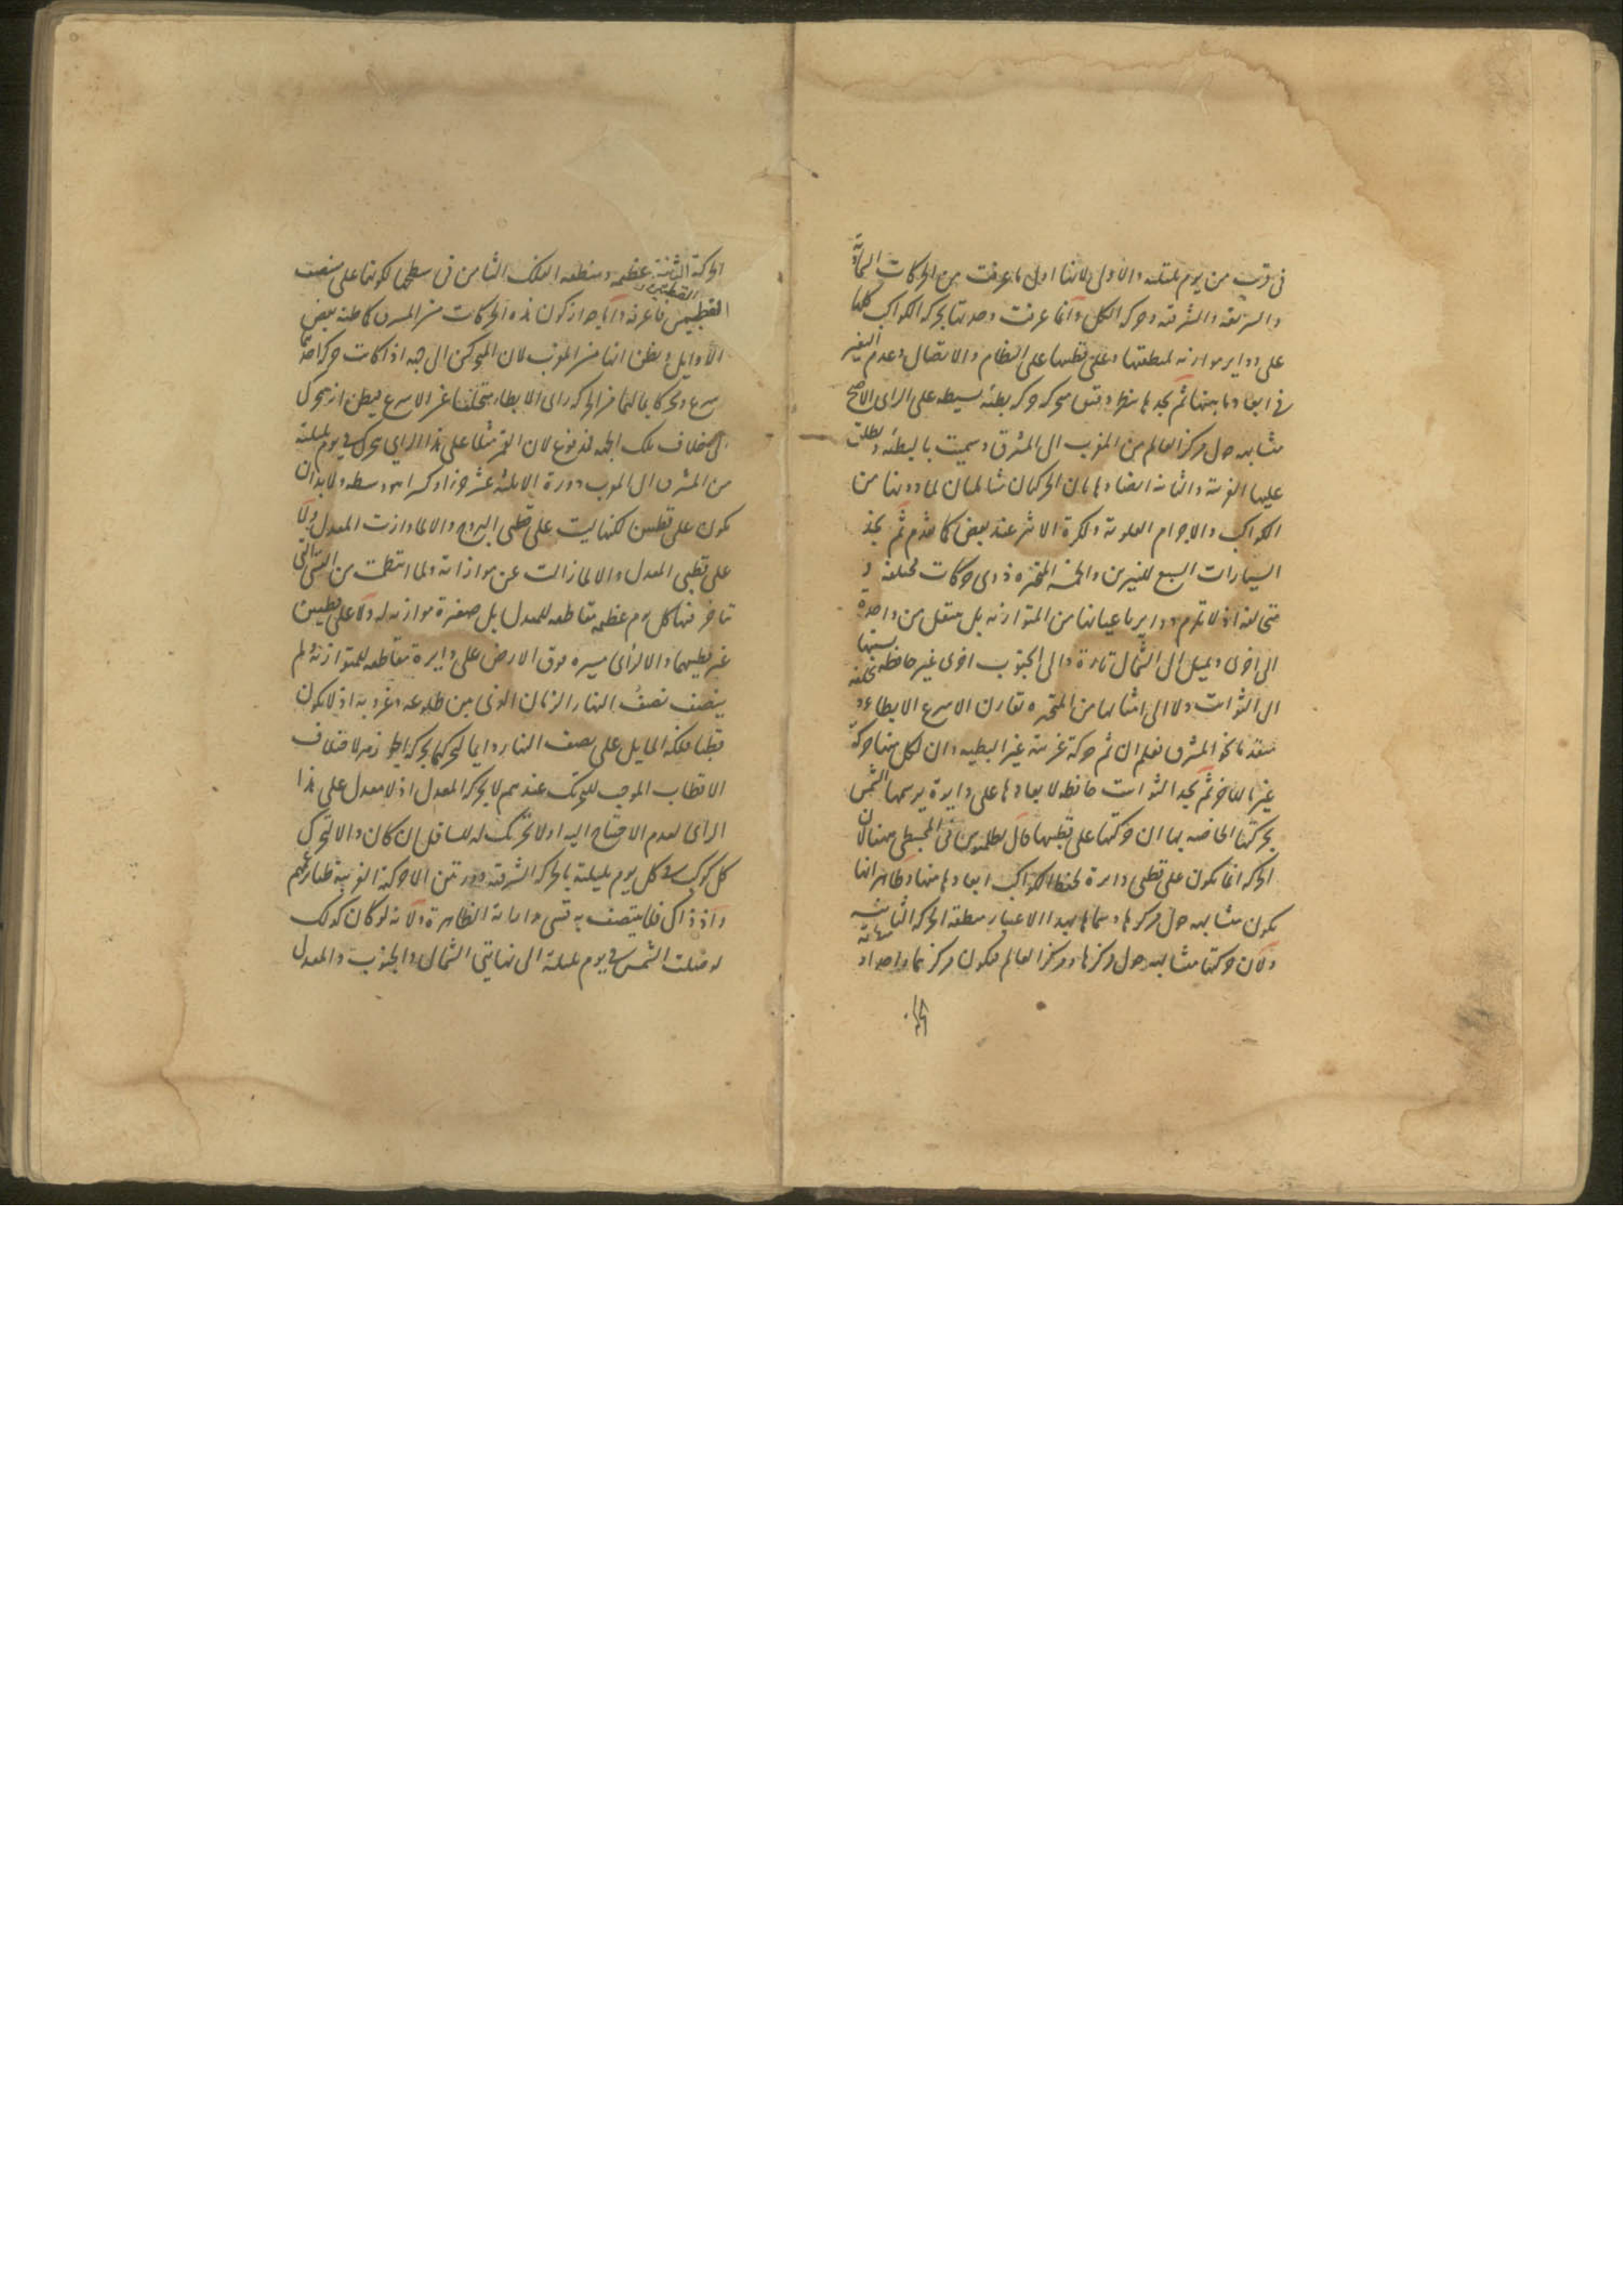 فى قرب من يوم بليلته والاولى لانها اول ما عرفت من الحركات السماوية
والسريعة والشرقية وحركة الكل وانما عرفت وحدتها بحركة الكواكب كلها
على دواير موازية لمنطقتها وعلى قطبيها على النظام والاتصال وعدم التغير
فى ابعاد ما بينها ثم نجدها بنظر دقيق متحركة حركة بطيئة بسيطة على الراى الاصح
متشابهة حول مركز العالم من المغرب الى المشرق وسميت بالبطيئة ويطلق
عليها الغربية والثانية ايضا وهاتان الحركتان شاملتان لما دونها من
الكواكب والاجرام العلوية ولكرة الاثير عند بعض كما تقدم ثم نجد
السيارات السبع للنيرين والخمسة المتحيرة ذوى حركات مختلفة و
متخالفة اذ لا تلزم دواير باعيانها من المتوازية بل ينتقل من واحدة
الى اخرى ويميل الى الشمال تارة والى الجنوب اخرى غير حافظة نسبتها
الى الثوابت ولا الى امثالها من المتحيرة تقارن الاسرع الابطاء و
متقدما نحو المشرق فعلم ان ثم حركة غربية غير البطيئة وان لكل منها حركة
غير ما للاخر ثم نجد الثوابت حافظة لابعادها على دايرة يرسمها الشمس
بحركتها الخاصة بها ان حركتها على قطبيها قال بطلميوس فى المجسطى
الحركة انما تكون على قطبى دايرة تحفظ الكواكب ابعادها منها وظاهر انها
تكون متشابهة حول مركزها وسماها بهذا الاعتبار منطقة الحركة الثانية
ولان حركتها متشابهة حول مركزها ومركز العالم فيكون مركزهما واحدا و
الحركة الثانية عظيمة ومنطقة الفلك الثامن فى سطحها لكونها على منتصف
القطبين
القطبين فاعرفه واما جواز كون هذه الحركات من المشرق كما ظنه بعض
الاوايل وبظن انها من المغرب لان المتحركين الى جهة اذا كانت حركة احدهما
اسرع وتحركا بالتمام من الحركة راى الابطاء متخلفا عن الاسرع فيظن انه يتحرك
الى خلاف تلك الجهة فمدفوع لان القمر مثلا على هذا الراى يتحرك فى يوم بليلته
من المشرق الى المغرب دورة الا ثلثة عشر جزءا وكسرا هو وسطه ولا بد ان
يكون على قطبين لكنها ليست على قطبى البروج والا لما وازت المعدل ولا
على قطبى المعدل والا لما زالت عن موازاته ولما انتظمت من القسى التى
تتاخر فيها كل يوم عظيمة مقاطعة للمعدل بل صغيرة موازية له ولا على قطبين
غير قطبيهما والا لراى مسيره فوق الارض على دايرة مقاطعة للمتوازية ولم
ينصف نصف النهار الزمان الذى بين طلوعه وغروبه اذ لا يكون
قطبا فلكه المايل على نصف النهار دايما لتحركهما بحركة
الاقطاب الموجب للتحريك عندهم لا بحركة المعدل اذ لا معدل على هذا
الراى لعدم الاحتياج اليه اذ لا تحريك له للسافل ان كان والا لتحرك
كل كوكب فى كل يوم بليلته بالحركة الشرقية دورتين الا حركته الغربية
واذ ذاك فلا ينتصف به قسى مداراته الظاهرة ولانه لو كان كذلك
لوصلت الشمس فى يوم بليلته الى نهايتى الشمال والجنوب والمعدل